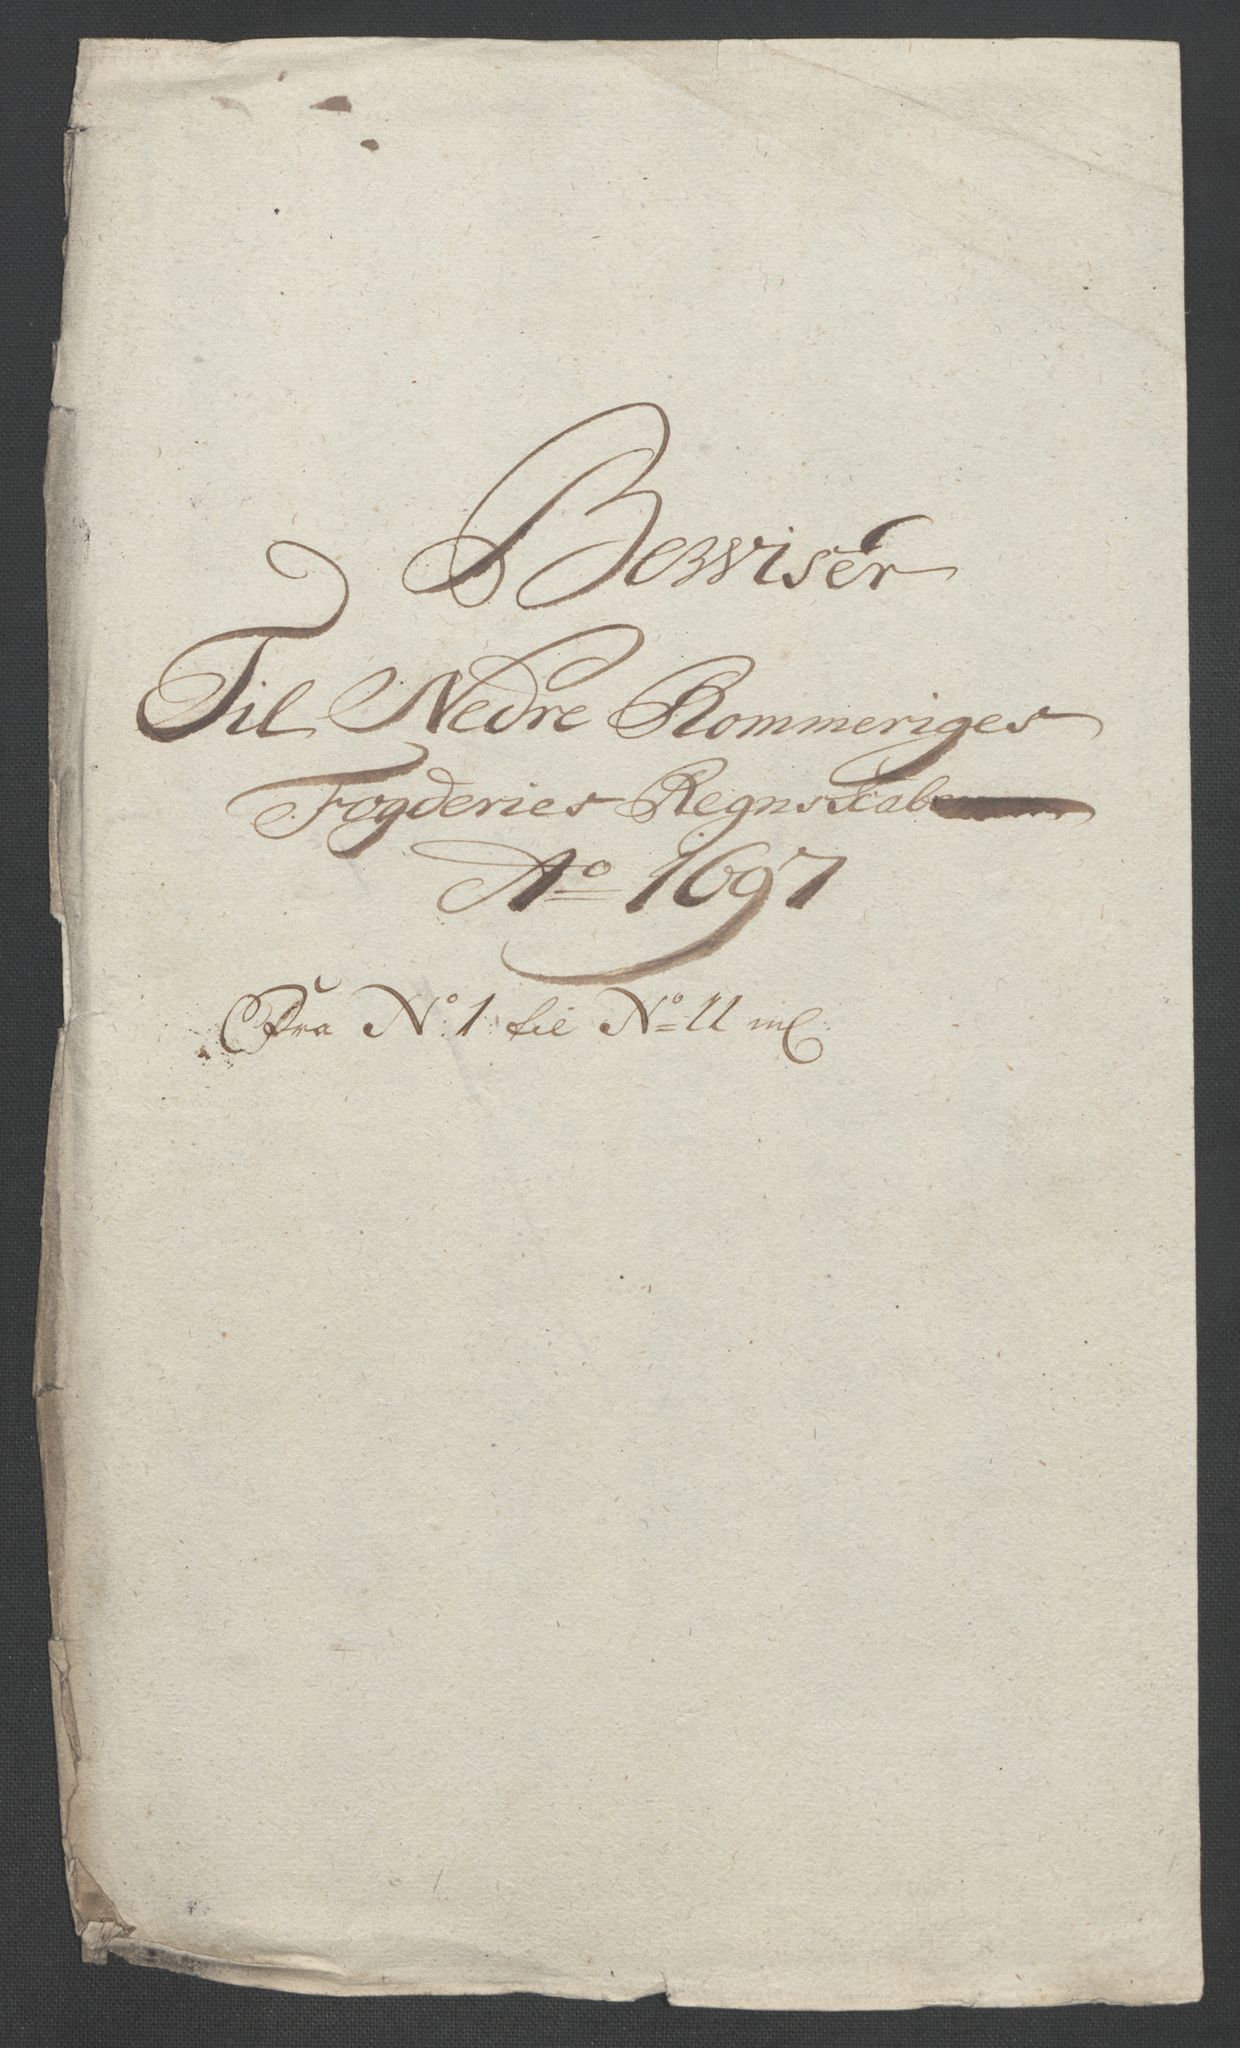 Bewiser
Til Nedre Rommeriges
Fogderies Regnskaber
Ao 1697
Fra No: 1 til No 11 incl